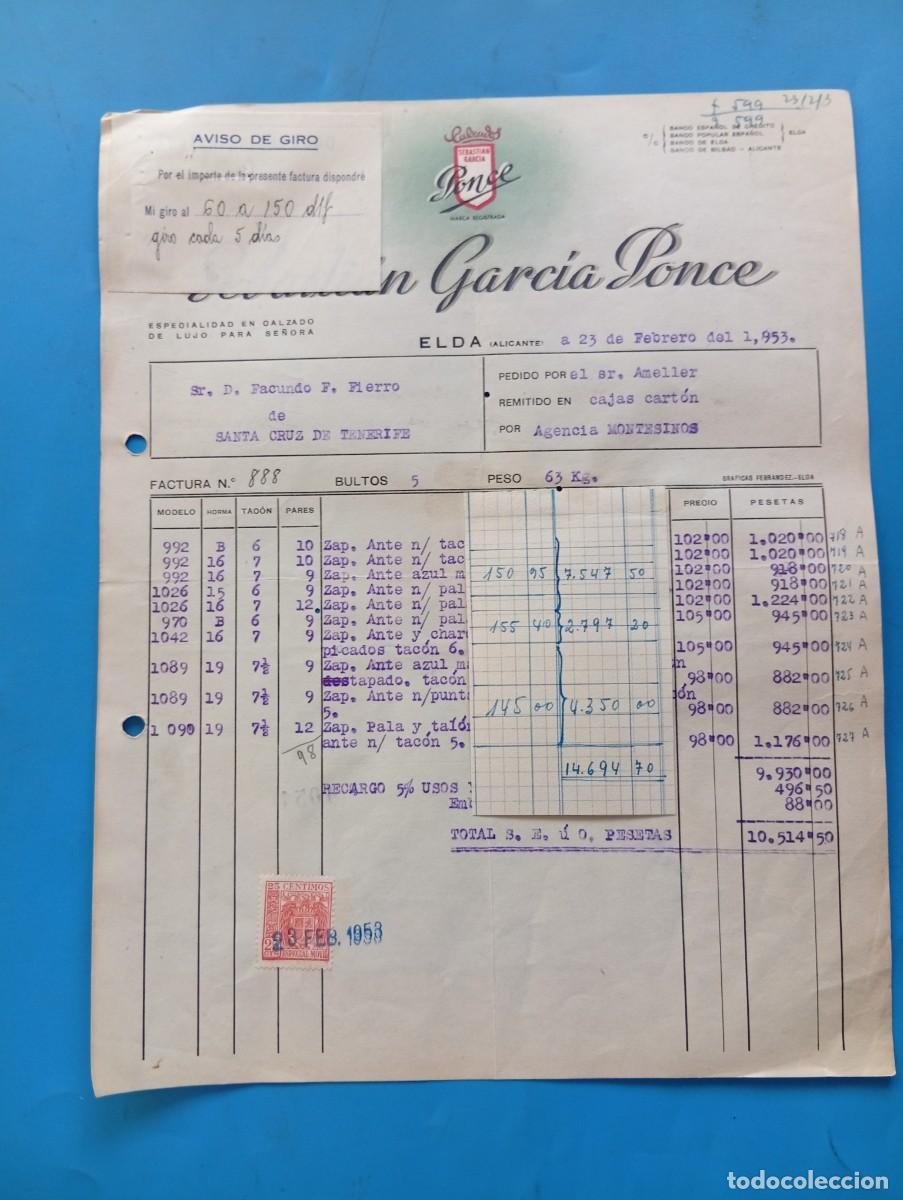 ƒ 599 23/2/3
599
AVISO DE GIRO
Por el importe de la presente factura dispondré
Mi giro al 60 a 150 d/f
giro cada 5 días
Calzados
SEBASTIAN
GARCIA
Ponce
MARCA REGISTRADA
C/C
BANCO ESPAÑOL DE CRÉDITO
BANCO POPULAR ESPAÑOL
BANCO DE ELDA
BANCO DE BILBAO - ALICANTE
ELDA
García Ponce
ESPECIALIDAD EN CALZADO
DE LUJO PARA SEÑORA
ELDA (ALICANTE) a 23 de Febrero del 1,953.
Sr. D. Facundo F. Fierro
de
SANTA CRUZ DE TENERIFE
PEDIDO POR el sr. Ameller
REMITIDO EN cajas cartón
POR Agencia MONTESINOS
FACTURA N.º 888 BULTOS 5 PESO 63 Kg.
GRAFICAS FERRANDEZ.-ELDA
MODELO HORMA TACÓN PARES PRECIO PESETAS
992 B 6 10 Zap. Ante n/ tac 102"00 1,020"00 718 A
992 16 7 10 Zap. Ante n/ tac 102"00 1,020"00 719 A
992 16 7 9 Zap. Ante azul m 102"00 918"00 720 A
1026 15 6 9 Zap. Ante n/ pal 102"00 918"00 721 A
1026 16 7 12 Zap. Ante n/ pal 102"00 1.224"00 722 A
970 B 6 9 Zap. Ante n/ pal 105"00 945"00 723 A
1042 16 7 9 Zap. Ante y char
picados tacón 6. 105"00 945"00 724 A
1089 19 7½ 9 Zap. Ante azul m
destapado. tacón 98"00 882"00 725 A
1089 19 7½ 9 Zap. Ante n/punt ón
5. 98"00 882"00 726 A
1 090 19 7½ 12 Zap. Pala y talón
ante n/ tacón 5. 98"00 1.176"00 727 A
98
9.930"00
RECARGO 5% USOS 496"50
Em 88"00
TOTAL S. E. ú O. PESETAS 10.514"50
150 95 7.547 50
155 40 2.797 20
145 00 4.350 00
14.694 70
25 CENTIMOS
ESPECIAL MOVIL
23 FEB. 1953
todocoleccion